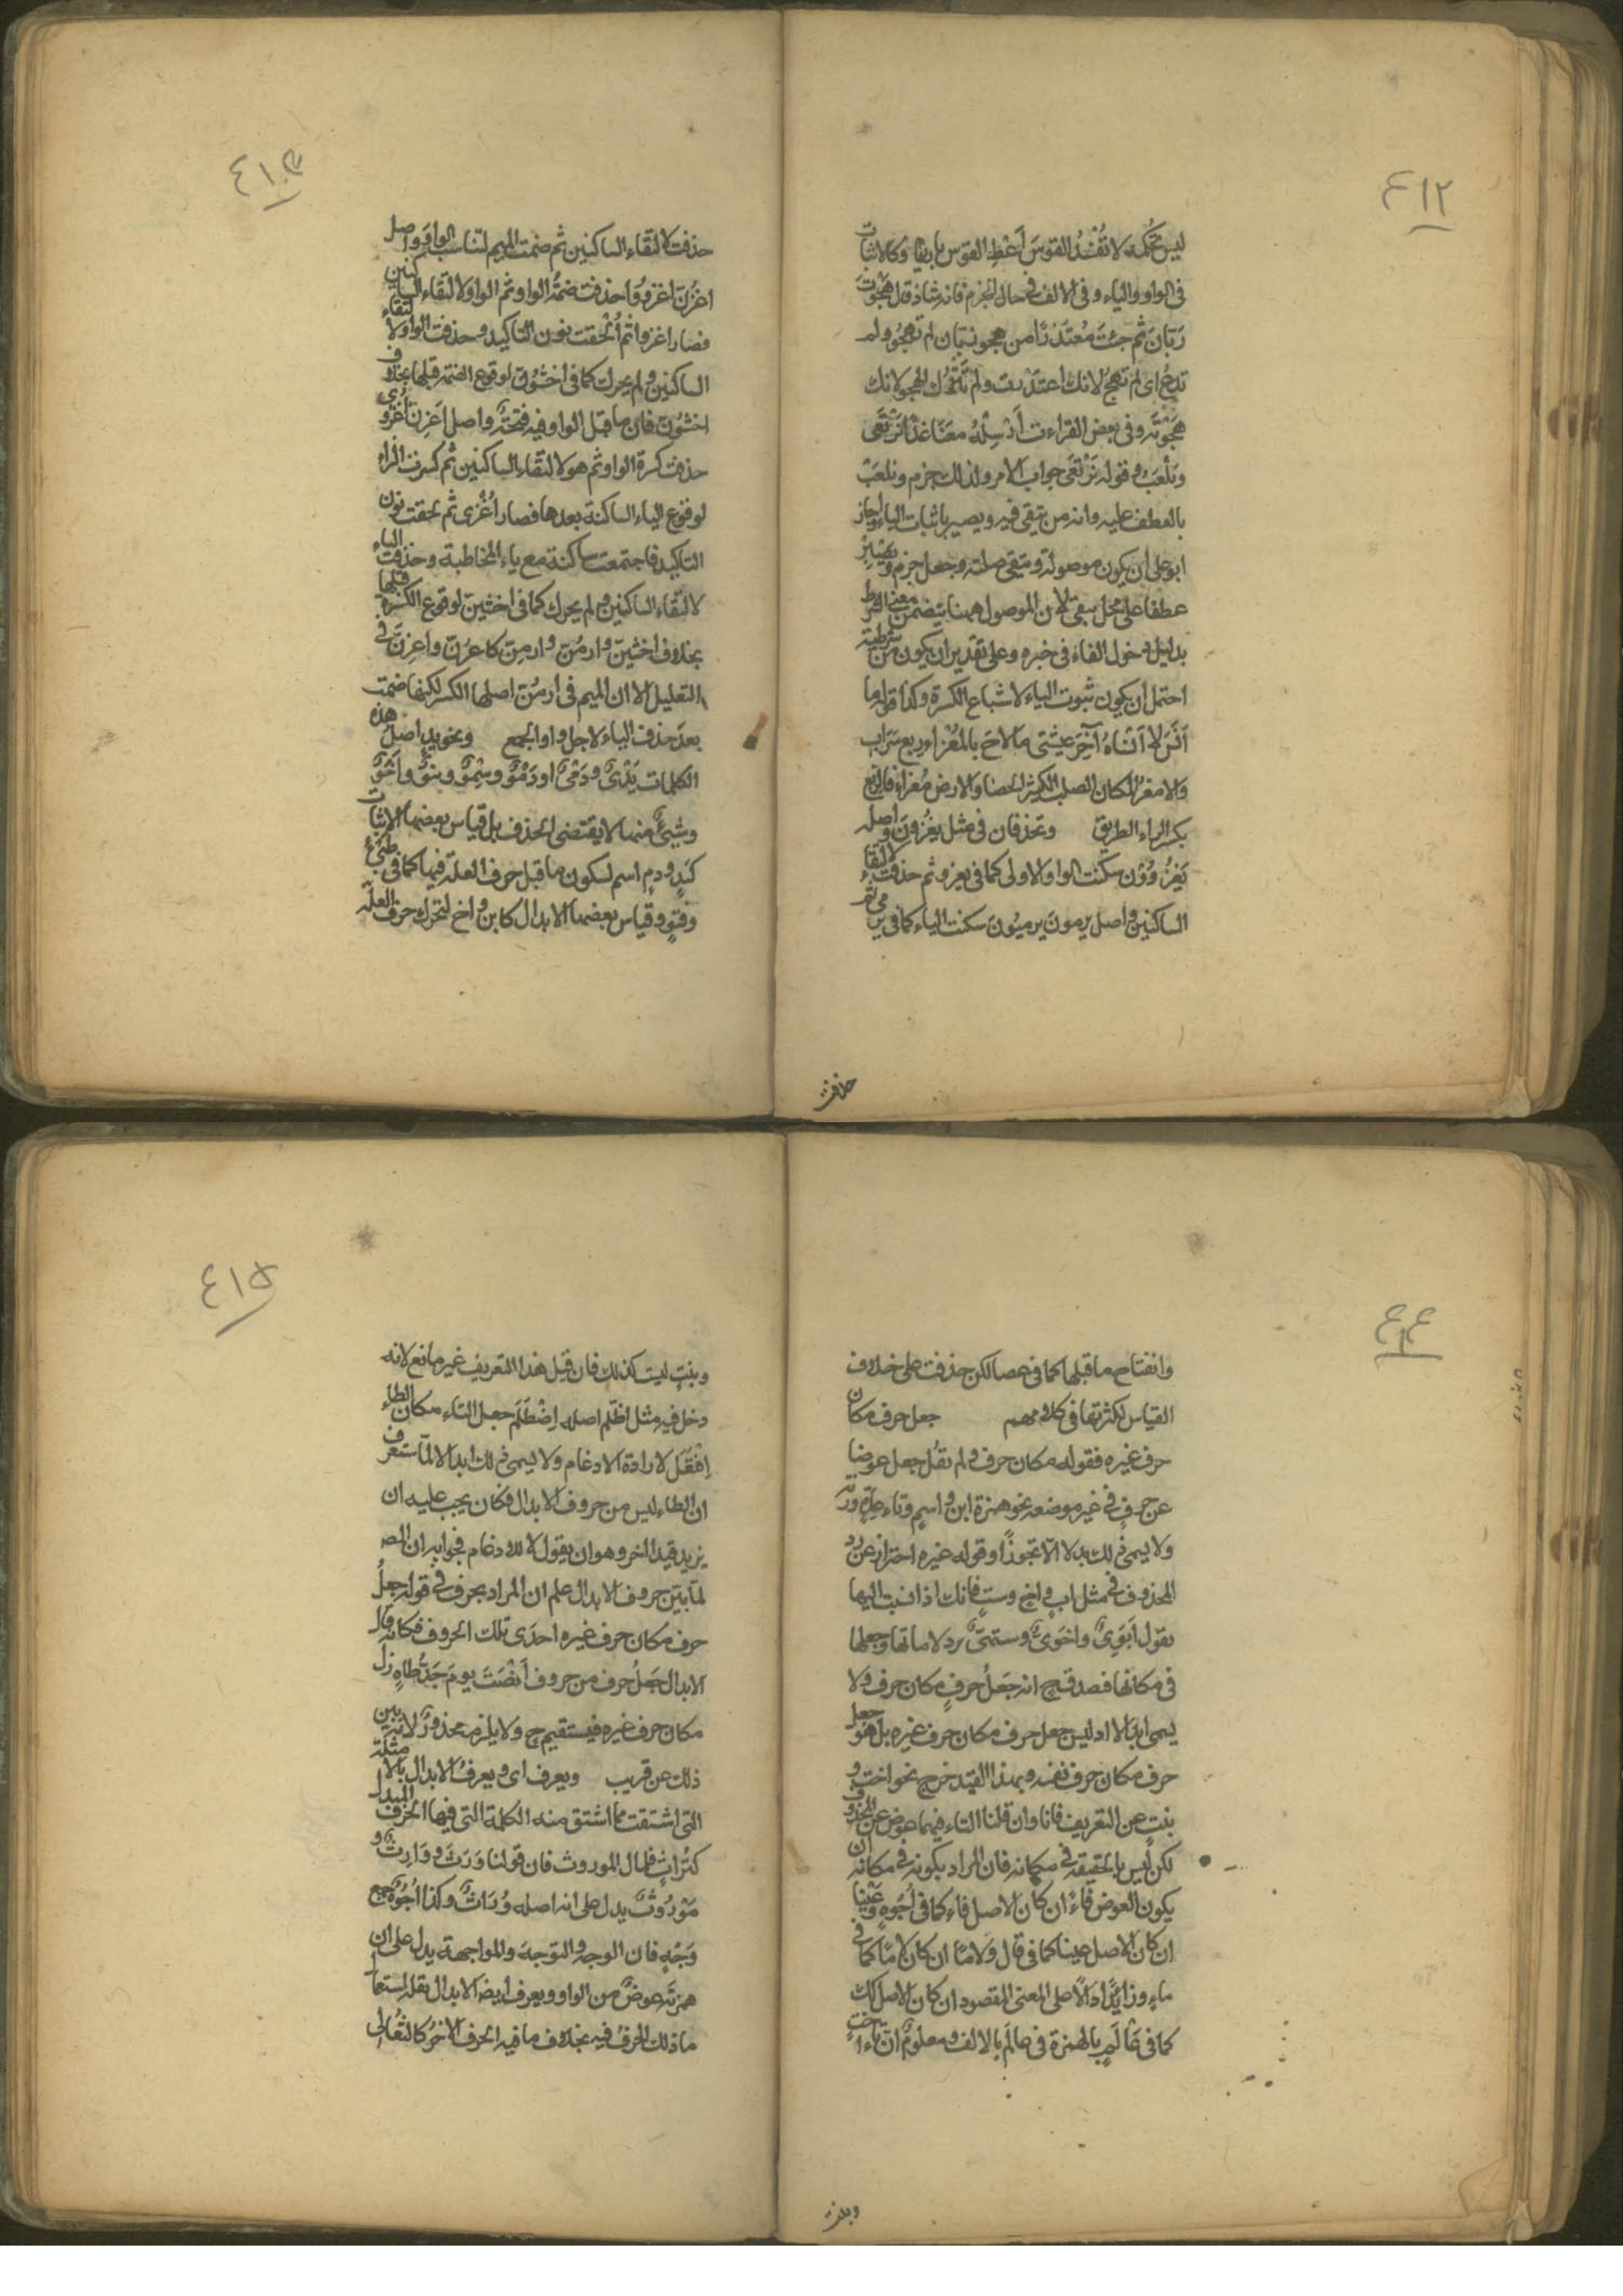 ٤١٢
ليس تحكمه لا تُفْسِدُ القوسَ أعْطِ القوس باريها وكالاثبات
فى الواو والياء وفى الالف فى حال الجزم فانه شاذ قال هَجَوْتَ
زَبَّانَ ثم جئتَ مُعتَذرًا من هجو زبّان لم تهجُو ولم
تدعُ اى لم تهجُ لانك اعتذرت ولم تترك الهجو لانك
هَجَوْتَه وفى بعض القراءت أرْسِلْهُ معَنا غدًا نَرْتَعَى
ونَلْعَبْ وقوله نَرْتَعَى جواب الامر ولذلك جزم ونلعَبْ
بالعطف عليه وانه من يتقى فيه ويصبر باثبات الياء واجاز
ابو على ان يكون من موصولة ويتقى صلته وجعل جزم ويَصْبِرْ
عطفا على محل يتقى لان الموصول ههنا يتضمن معنى الشرط
بدليل دخول الفاء فى خبره وعلى تقدير ان يكون من شرطية
احتمل ان يكون ثبوت الياء لاشباع الكسرة وكذا قوله ما
أنْسَ لا أنْساهُ آخِرَ عيشتى ما لاحَ بالمَعْزاءِ ريع سَراب
والامعز المكان الصلب الكثير الحصا والارض مُعزاء فالريع
بكسر الراء الطريق وتحذفان فى مثل يغزُونَ واصله
يَغزُوُوْن سكنت الواو الاولى كما فى يغزو ثم حذفت لالتقاء
الساكنين واصل يرمون يرميُون سكنت الياء كما فى يرمى ثم
حذفت
٤١٣
حذفت لالتقاء الساكنين ثم ضمت الميم لتناسب الواو واصل
اغزُنّ اغزوُوا حذفت ضمة الواو ثم الواو لالتقاء الساكنين
فصار اغزوا ثم أُلحقت نون التاكيد وحذفت الواو لالتقاء
الساكنين ولم يحرك كما فى اخشَوُنّ لوقوع الضمة قبلها بخلاف
اخشَوُنّ فان ما قبل الواو فيه فتحة واصل اغزِنّ اُغْزُوِى
حذفت كسرة الواو ثم هو لالتقاء الساكنين ثم كسرت الزاء
لوقوع الياء الساكنة بعدها فصار اُغْزِى ثم لحقت نون
التاكيد فاجتمعت ساكنة مع ياء المخاطبة وحذفت الياء
لالتقاء الساكنين ولم يحرك كما فى اخشَيِنّ لوقوع الكسرة قبلها
بخلاف اخشينّ وارمُنّ وارمِنّ كاغزُنّ واغزِنّ فى
التعليل الا ان الميم فى ارمُنّ اصلها الكسر لكنها ضمت
بعد حذف الياء لاجل واو الجمع ونحو يدٍ اصل هذه
الكلمات يَدْىٌ ودَمْىٌ او دَمْوٌ وسِمْوٌ وبنوٌ وأخوٌ
وشئٌ منها لا يقتضى الحذف بل قياس بعضها الاثبات
كيَدٍ ودمٍ اسم لسكون ما قبل حرف العلة فيها كما فى ظَبْىٍ
وقنوٍ وقياس بعضها الابدال كابن واخ لتحرك حرف العلّة
٤١٤
وانفتاح ما قبلها كما فى عصا لكن حذفت على خلاف
القياس لكثرتها فى كلامهم جعل حرف مكان
حرف غيره فقوله مكان حرف ولم تقُل جعل عوضا
عن حرفٍ فى غير موضعه نحو همزة ابن واسم وتاء عِدَةٍ وزنة
ولا يسمى ذلك بدلا الا تجوّزًا وقوله غيره احتراز عن رد
المحذوف فى مثل ابٍ واخٍ وستٍ فانك اذا نسبت اليها
تقول اَبَوِىٌّ واخَوِىٌّ وستهىٌّ برد لاماتها وجعلها
فى مكانها فصدق ح انه جَعَلُ حرفٍ مكان حرف ولا
يسمى ابدالا اذ ليس جعل حرف مكان حرف غيره بل هو جعل
حرف مكان حرف نفسه وبهذا القيد خرج نحو اختٍ و
بنتٍ عن التعريف فانا وان قلنا التاء فيهما عوض عن المحذوف
لكن ليس بالحقيقة فى مكانه فان المراد بكونه فى مكانه ان
يكون العوض فاءً ان كان الاصل فاء كما فى اُجُوهٍ وعَيْنا
ان كان الاصل عينا كما فى قال ولامًا ان كان لامًا كما فى
ماءٍ وزائدًا دالًا على المعنى المقصود ان كان الاصل كك
كما فى عَألَمٍ بالهمزة فى عالَم بالالف ومعلومٌ انّ تاء اختٍ
وبنت
٤١٥
وبنتٍ ليست كذلك فان قيل هذا التعريف غير مانع لانه
دخل فيه مثل اظّلم اصله اِضْطَلَمَ جعل التاء مكان الطاء
اِفْتَعَلَ لارادة الادغام ولا يسمى ذلك ابدالا لما ستعرف
ان الظاء ليس من حروف الابدال فكان يجب عليه ان
يزيد قيدا اخر وهو ان يقول لا للادغام فجوابه ان المصـ
لمّا بيّن حروف الابدال علم ان المراد بحرف فى قوله جعلُ
حرف مكان حرف غيره احدى تلك الحروف فكانه قال
الابدال جَعْلُ حرف من حروف أنْصَتَ يومَ جَدٌّ طاهٍ زلّ
مكان حرف غيره فيستقيم ح ولا يلزم محذورٌ لانه يبين
ذلك عن قريب ويعرف اى ويعرفُ الابدال بالامثلة
التى اشتقت مما اشتق منه الكلمة التى فيها الحرف المبدل
كتُراثٍ لمال الموروث فان قولنا وَرِثَ ووَارِثٌ و
مَوْرُوثٌ يدل على انه اصله وُرَاثٌ وكذا اُجُوهٌ جمع
وَجْهٍ فان الوجه والتوجّه والمواجهة يدل على ان
همزته عوضٌ من الواو ويعرف ايضا الابدال بقلة استعما
ما ذلك الحرفُ فيه بخلاف ما فيه الحرف الاخرُ كالثعالى